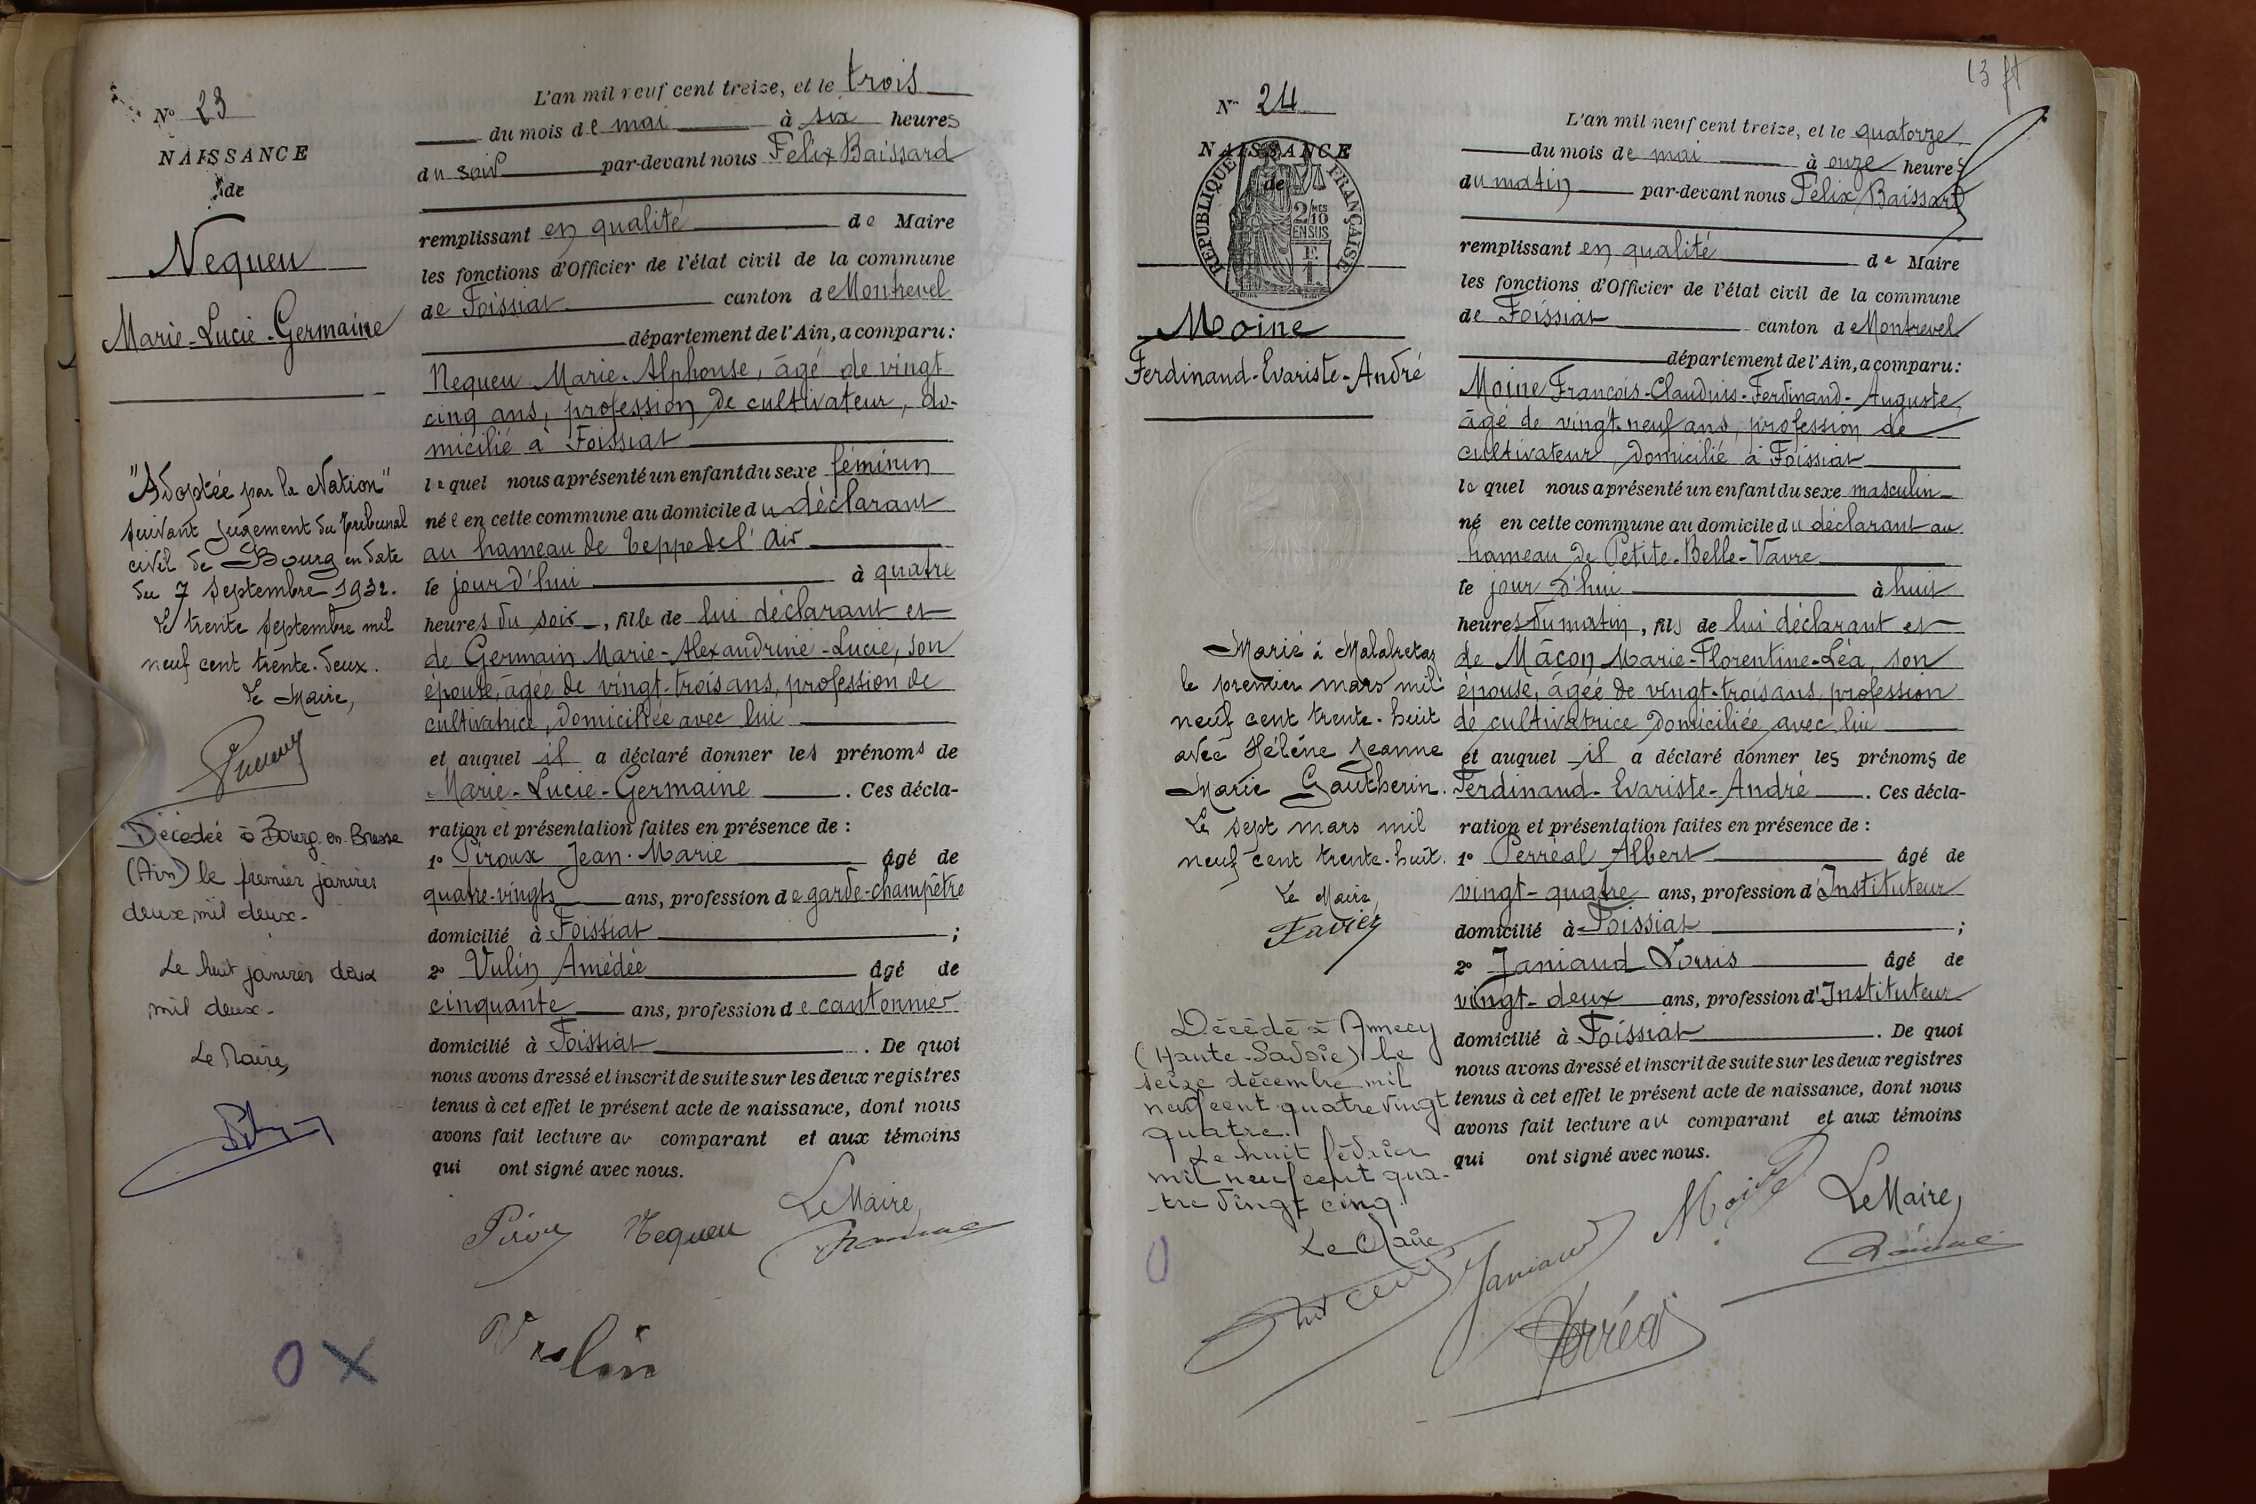 N° 23
NAISSANCE
de
Nequeu
Marie-Lucie-Germaine
"Adoptée par la Nation"
suivant jugement du tribunal
civil de Bourg en date
du 7 septembre 1932.
Le trente septembre mil
neuf cent trente-deux.
Le Maire,
Décédée à Bourg-en-Bresse
(Ain) le premier janvier
deux mil deux-
Le huit janvier deux
mil deux-
Le Maire,
L'an mil neuf cent treize, et le trois
du mois de mai à six heures
du soir par-devant nous Felix Baissard
remplissant en qualité de Maire
les fonctions d'Officier de l'état civil de la commune
de Foissiat canton de Montrevel
département de l'Ain, a comparu :
Nequeu Marie-Alphonse, âgé de vingt
cinq ans, profession de cultivateur, do-
micilié à Foissiat
lequel nous a présenté un enfant du sexe féminin
née en cette commune au domicile du déclarant
au hameau de Teppe de l'Air
le jour d'hui à quatre
heures du soir, fille de lui déclarant et
de Germain Marie-Alexandrine-Lucie, son
épouse, âgée de vingt-trois ans, profession de
cultivatrice, domiciliée avec lui
et auquel il a déclaré donner les prénoms de
Marie-Lucie-Germaine. Ces décla-
ration et présentation faites en présence de :
1° Piroux Jean-Marie âgé de
quatre-vingts ans, profession de garde-champêtre
domicilié à Foissiat ;
2° Vulin Amédée âgé de
cinquante ans, profession de cantonnier
domicilié à Foissiat. De quoi
nous avons dressé et inscrit de suite sur les deux registres
tenus à cet effet le présent acte de naissance, dont nous
avons fait lecture au comparant et aux témoins
qui ont signé avec nous.
Le Maire,
Nequeu
Vulin
O X
13 ft
N° 24
NAISSANCE
de
RÉPUBLIQUE FRANÇAISE
2/10 MES
EN SUS
Moine
Ferdinand-Evariste-André
Marié à Malafretaz
le premier mars mil
neuf cent trente-huit
avec Hélène Jeanne
Marie Gautherin.
Le sept mars mil
neuf cent trente-huit.
Le Maire,
Décédé à Annecy
(Haute-Savoie) le
seize décembre mil
neuf cent quatre vingt
quatre.
Le huit février
mil neuf cent qua-
tre vingt cinq
Le Maire
O
L'an mil neuf cent treize, et le quatorze
du mois de mai à onze heures
du matin par-devant nous Félix Baissard
remplissant en qualité de Maire
les fonctions d'Officier de l'état civil de la commune
de Foissiat canton de Montrevel
département de l'Ain, a comparu :
Moine François-Claudius-Ferdinand-Auguste,
âgé de vingt-neuf ans, profession de
cultivateur, domicilié à Foissiat
lequel nous a présenté un enfant du sexe masculin
né en cette commune au domicile du déclarant au
hameau de Petite-Belle-Vavre
le jour d'hui à huit
heures du matin, fils de lui déclarant et
de Mâcon Marie-Florentine-Léa, son
épouse, âgée de vingt-trois ans, profession
de cultivatrice domiciliée avec lui
et auquel il a déclaré donner les prénoms de
Ferdinand-Evariste-André. Ces décla-
ration et présentation faites en présence de :
1° Perréal Albert âgé de
vingt-quatre ans, profession d'Instituteur
domicilié à Foissiat ;
2° Janiaud Louis âgé de
vingt-deux ans, profession d'Instituteur
domicilié à Foissiat. De quoi
nous avons dressé et inscrit de suite sur les deux registres
tenus à cet effet le présent acte de naissance, dont nous
avons fait lecture au comparant et aux témoins
qui ont signé avec nous.
Le Maire,
Moine
Janiaud
Perréal